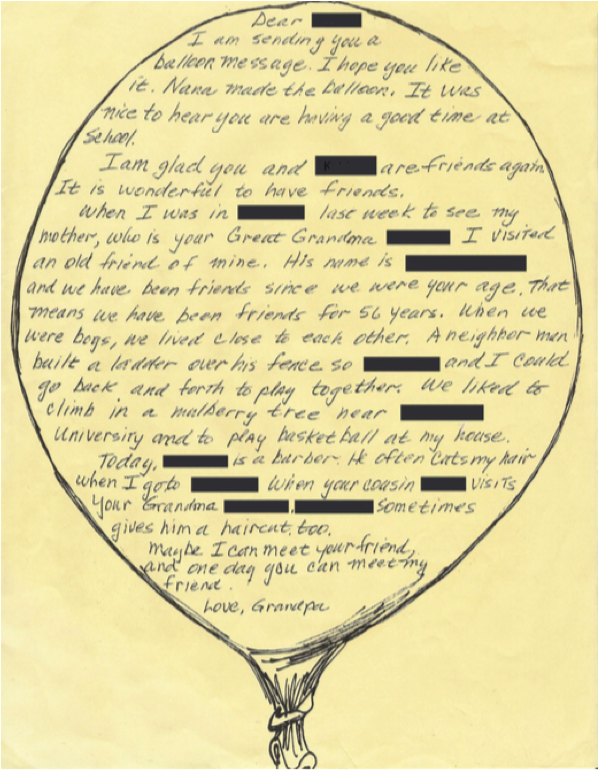 Dear
I am sending you a
balloon message. I hope you like
it. Nana made the balloon. It was
nice to hear you are having a good time at
School.
I am glad you and are friends again
It is wonderful to have friends.
When I was in last week to see my
mother, who is your Great Grandma I visited
an old friend of mine. His name is
and we have been friends since we were your age. That
means we have been friends for 56 years. When we
were boys, we lived close to each other. A neighbor man
built a ladder over his fence so and I could
go back and forth to play together. We liked to
climb in a mulberry tree near
University and to play basketball at my house.
Today, is a barber. He often cuts my hair
when I go to When your cousin visits
your Grandma , sometimes
gives him a haircut, too.
maybe I can meet your friend,
and one day you can meet my
friend.
Love, Grandpa